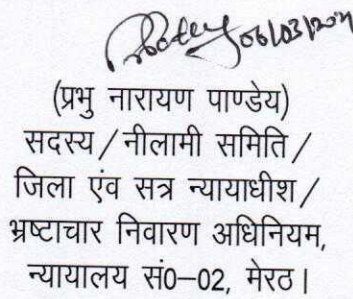 06/03/2021
(प्रभु नारायण पाण्डेय)
सदस्य/नीलामी समिति/
जिला एंव सत्र न्यायाधीश/
भ्रष्टाचार निवारण अधिनियम,
न्यायालय सं0-02, मेरठ।